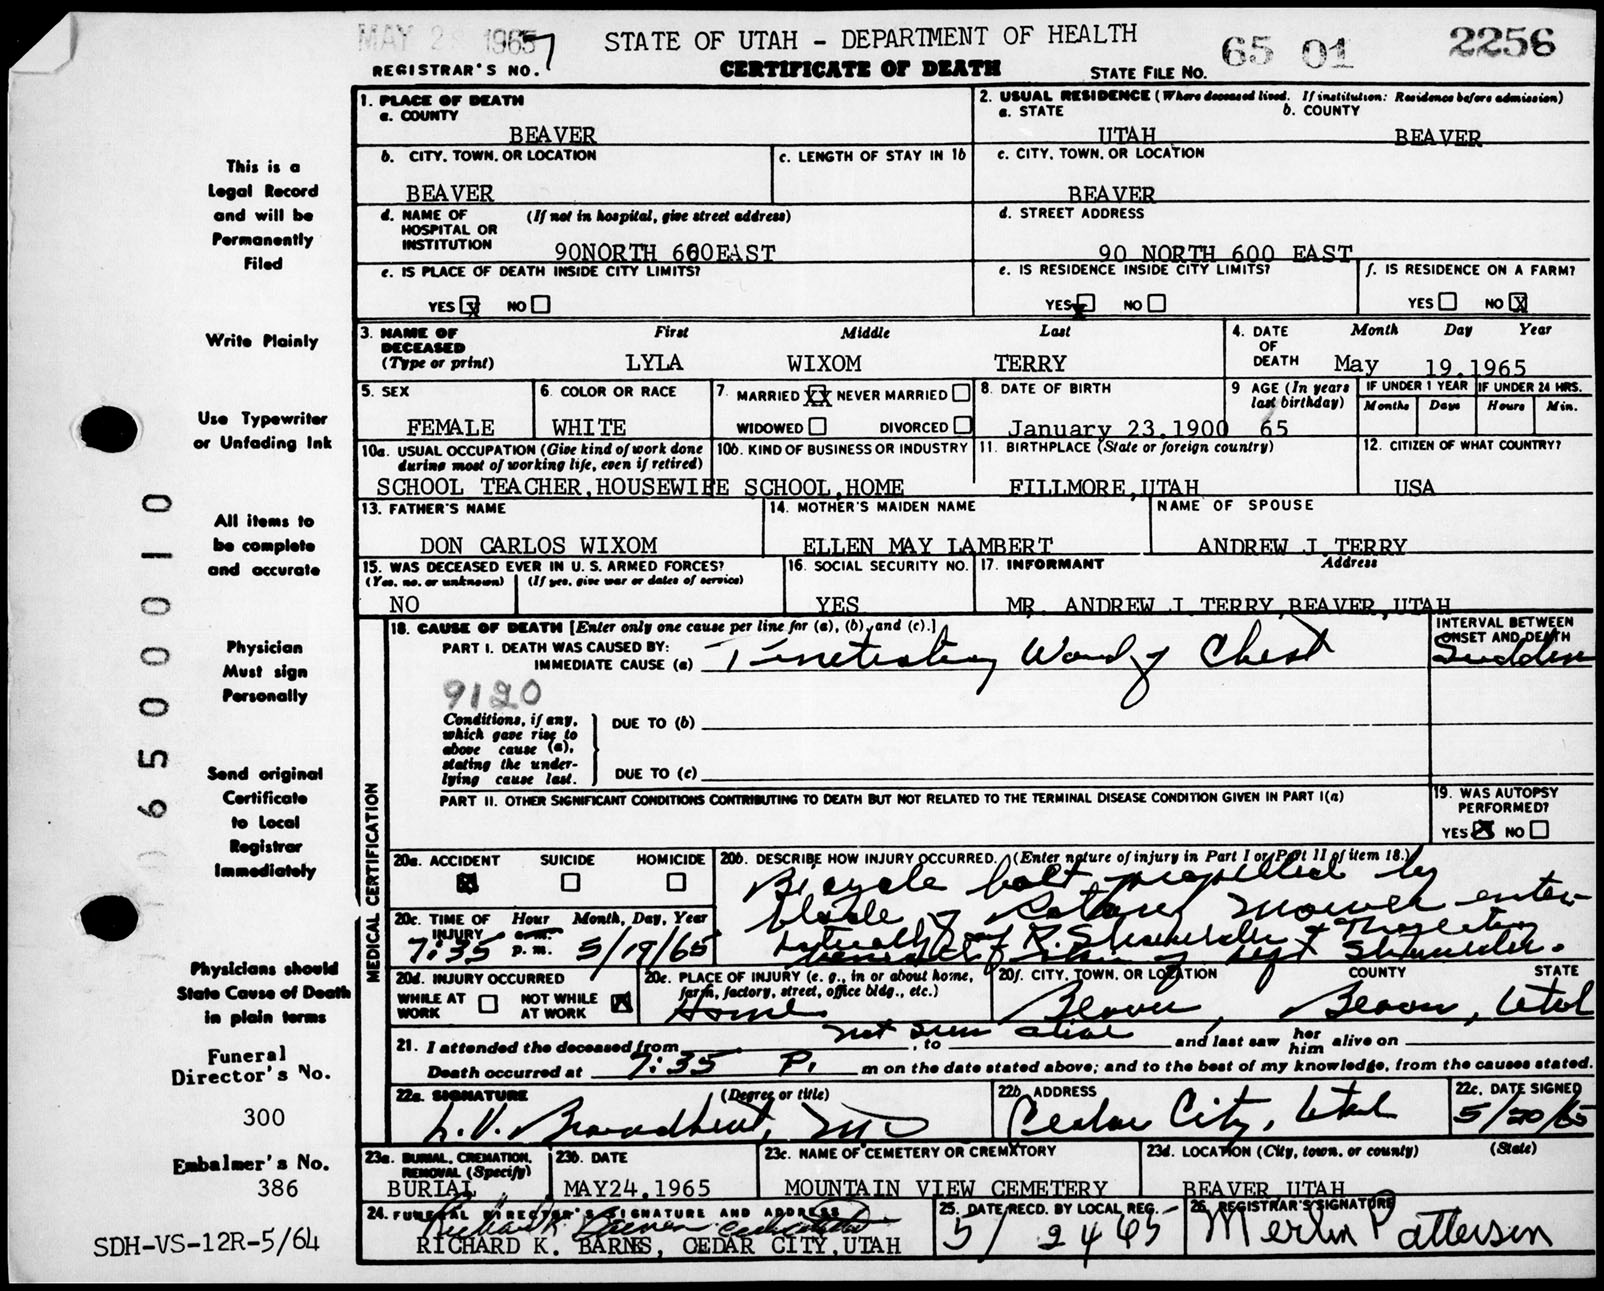 MAY 2 1965 7
STATE OF UTAH - DEPARTMENT OF HEALTH
65 01 2256
REGISTRAR'S NO.
CERTIFICATE OF DEATH
STATE FILE NO.
This is a
Legal Record
and will be
Permanently
Filed
Write Plainly
Use Typewriter
or Unfading Ink
All items to
be complete
and accurate
Physician
Must sign
Personally
Send original
Certificate
to Local
Registrar
Immediately
Physicians should
State Cause of Death
in plain terms
Funeral
Director's No.
300
Embalmer's No.
386
SDH-VS-12R-5/64
0 6 5 0 0 0 1 0
1. PLACE OF DEATH
a. COUNTY
BEAVER
2. USUAL RESIDENCE (Where deceased lived. If institution: Residence before admission)
a. STATE b. COUNTY
UTAH BEAVER
b. CITY, TOWN, OR LOCATION
BEAVER
c. LENGTH OF STAY IN 1b
c. CITY, TOWN, OR LOCATION
BEAVER
d. NAME OF HOSPITAL OR INSTITUTION (If not in hospital, give street address)
90NORTH 600EAST
d. STREET ADDRESS
90 NORTH 600 EAST
e. IS PLACE OF DEATH INSIDE CITY LIMITS?
YES X NO
e. IS RESIDENCE INSIDE CITY LIMITS?
YES X NO
f. IS RESIDENCE ON A FARM?
YES NO X
3. NAME OF DECEASED (Type or print)
First Middle Last
LYLA WIXOM TERRY
4. DATE OF DEATH
Month Day Year
May 19,1965
5. SEX
FEMALE
6. COLOR OR RACE
WHITE
7. MARRIED XX NEVER MARRIED
WIDOWED DIVORCED
8. DATE OF BIRTH
January 23,1900
9 AGE (In years last birthday)
65
IF UNDER 1 YEAR IF UNDER 24 HRS.
Months Days Hours Min.
10a. USUAL OCCUPATION (Give kind of work done during most of working life, even if retired)
SCHOOL TEACHER,HOUSEWIFE
10b. KIND OF BUSINESS OR INDUSTRY
SCHOOL,HOME
11. BIRTHPLACE (State or foreign country)
FILLMORE,UTAH
12. CITIZEN OF WHAT COUNTRY?
USA
13. FATHER'S NAME
DON CARLOS WIXOM
14. MOTHER'S MAIDEN NAME
ELLEN MAY LAMBERT
NAME OF SPOUSE
ANDREW J.TERRY
15. WAS DECEASED EVER IN U.S. ARMED FORCES?
(Yes, no, or unknown) (If yes, give war or dates of service)
NO
16. SOCIAL SECURITY NO.
YES
17. INFORMANT Address
MR. ANDREW J.TERRY,BEAVER,UTAH
MEDICAL CERTIFICATION
18. CAUSE OF DEATH [Enter only one cause per line for (a), (b), and (c).]
PART I. DEATH WAS CAUSED BY:
IMMEDIATE CAUSE (a) Penetrating Wound of Chest
INTERVAL BETWEEN ONSET AND DEATH
Sudden
9120
Conditions, if any, which gave rise to above cause (a), stating the underlying cause last.
DUE TO (b)
DUE TO (c)
PART II. OTHER SIGNIFICANT CONDITIONS CONTRIBUTING TO DEATH BUT NOT RELATED TO THE TERMINAL DISEASE CONDITION GIVEN IN PART I(a)
19. WAS AUTOPSY PERFORMED?
YES X NO
20a. ACCIDENT SUICIDE HOMICIDE
X
20b. DESCRIBE HOW INJURY OCCURRED. (Enter nature of injury in Part I or Part II of item 18.)
Bicycle bolt propelled by
blade of Rotary Mower enter-
R. Shoulder
skin of left Shoulder.
20c. TIME OF INJURY Hour a.m. p.m. Month, Day, Year
7:35 5/19/65
20d. INJURY OCCURRED
WHILE AT WORK NOT WHILE AT WORK X
20e. PLACE OF INJURY (e. g., in or about home, farm, factory, street, office bldg., etc.)
Home
20f. CITY, TOWN, OR LOCATION COUNTY STATE
Beaver, Beaver, Utah
21. I attended the deceased from not seen alive, to and last saw her him alive on
Death occurred at 7:35 P. m on the date stated above; and to the best of my knowledge, from the causes stated.
22a. SIGNATURE (Degree or title)
L.V. Broadbent, MD
22b. ADDRESS
Cedar City, Utah
22c. DATE SIGNED
5/20/65
23a. BURIAL, CREMATION, REMOVAL (Specify)
BURIAL
23b. DATE
MAY24,1965
23c. NAME OF CEMETERY OR CREMATORY
MOUNTAIN VIEW CEMETERY
23d. LOCATION (City, town, or county) (State)
BEAVER UTAH
24. FUNERAL DIRECTOR'S SIGNATURE AND ADDRESS
RICHARD K. BARNS, CEDAR CITY,UTAH
25. DATE RECD. BY LOCAL REG.
5/ 24 65
26. REGISTRAR'S SIGNATURE
Merlin Patterson